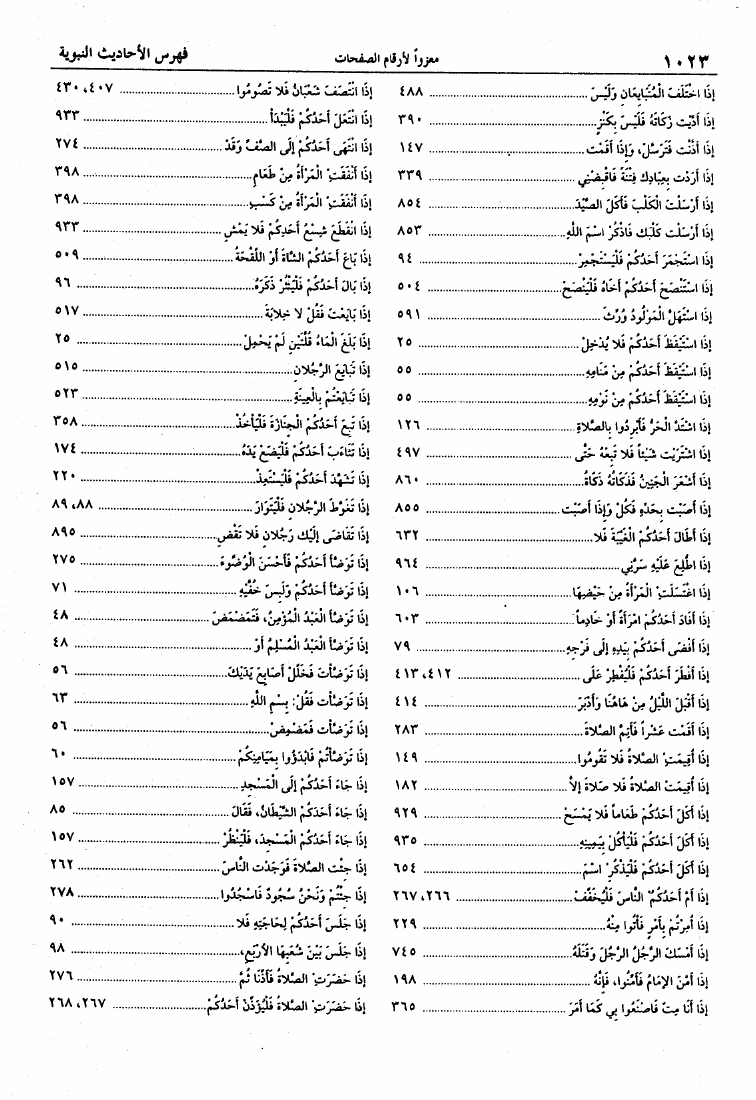 ١٠٢٣ معزواً لأرقام الصفحات فهرس الأحاديث النبوية
إِذَا اخْتَلَفَ الْمُتَبَايِعَانِ وَلَيْسَ ........ ٤٨٨
إِذَا أَدَّيْتَ زَكَاتَهُ فَلَيْسَ بِكَنْزٍ ........ ٣٩٠
إِذَا أَذَّنْتَ فَتَرَسَّلْ، وَإِذَا أَقَمْتَ ........ ١٤٧
إِذَا أَرَدْتَ بِعِبَادِكَ فِتْنَةً فَاقْبِضْنِي ........ ٣٣٩
إِذَا أَرْسَلْتَ الْكَلْبَ فَأَكَلَ الصَّيْدَ ........ ٨٥٤
إِذَا أَرْسَلْتَ كَلْبَكَ فَاذْكُرْ اسْمَ اللَّهِ ........ ٨٥٣
إِذَا اسْتَجْمَرَ أَحَدُكُمْ فَلْيَسْتَجْمِرْ ........ ٩٤
إِذَا اسْتَنْصَحَ أَحَدُكُمْ أَخَاهُ فَلْيَنْصَحْ ........ ٥٠٤
إِذَا اسْتَهَلَّ الْمَوْلُودُ وُرِّثَ ........ ٥٩١
إِذَا اسْتَيْقَظَ أَحَدُكُمْ فَلا يُدْخِلْ ........ ٢٥
إِذَا اسْتَيْقَظَ أَحَدُكُمْ مِنْ مَنَامِهِ ........ ٥٥
إِذَا اسْتَيْقَظَ أَحَدُكُمْ مِنْ نَوْمِهِ ........ ٥٥
إِذَا اشْتَدَّ الْحَرُّ فَأَبْرِدُوا بِالصَّلاةِ ........ ١٢٦
إِذَا اشْتَرَيْتَ شَيْئاً فَلا تَبِعْهُ حَتَّى ........ ٤٩٧
إِذَا أَشْعَرَ الْجَنِينُ فَذَكَاتُهُ ذَكَاةُ ........ ٨٦٠
إِذَا أَصَبْتَ بِحَدِّهِ فَكُلْ وَإِذَا أَصَبْتَ ........ ٨٥٥
إِذَا أَطَالَ أَحَدُكُمْ الْغَيْبَةَ فَلا ........ ٦٣٢
إِذَا اطُّلِعَ عَلَيْهِ سَرَّنِي ........ ٩٦٤
إِذَا اغْتَسَلَتِ الْمَرْأَةُ مِنْ حَيْضِهَا ........ ١٠٦
إِذَا أَفَادَ أَحَدُكُمْ امْرَأَةً أَوْ خَادِماً ........ ٦٠٣
إِذَا أَفْضَى أَحَدُكُمْ بِيَدِهِ إِلَى فَرْجِهِ ........ ٧٩
إِذَا أَفْطَرَ أَحَدُكُمْ فَلْيُفْطِرْ عَلَى ........ ٤١٢، ٤١٣
إِذَا أَقْبَلَ اللَّيْلُ مِنْ هَاهُنَا وَأَدْبَرَ ........ ٤١٤
إِذَا أَقَمْتَ عَشْراً فَأَتِمَّ الصَّلاةَ ........ ٢٨٣
إِذَا أُقِيمَتِ الصَّلاةُ فَلا تَقُومُوا ........ ١٤٩
إِذَا أُقِيمَتِ الصَّلاةُ فَلا صَلاةَ إِلاَّ ........ ١٨٢
إِذَا أَكَلَ أَحَدُكُمْ طَعَاماً فَلا يَمْسَحْ ........ ٩٢٩
إِذَا أَكَلَ أَحَدُكُمْ فَلْيَأْكُلْ بِيَمِينِهِ ........ ٩٣٥
إِذَا أَكَلَ أَحَدُكُمْ فَلْيَذْكُرْ اسْمَ ........ ٦٥٤
إِذَا أَمَّ أَحَدُكُمْ النَّاسَ فَلْيُخَفِّفْ ........ ٢٦٦، ٢٦٧
إِذَا أَمَرْتُكُمْ بِأَمْرٍ فَأْتُوا مِنْهُ ........ ٢٢٩
إِذَا أَمْسَكَ الرَّجُلُ الرَّجُلَ وَقَتَلَهُ ........ ٧٤٥
إِذَا أَمَّنَ الإِمَامُ فَأَمِّنُوا، فَإِنَّهُ ........ ١٩٨
إِذَا أَنَا مِتُّ فَاصْنَعُوا بِي كَمَا أَمَرَ ........ ٣٦٥
إِذَا انْتَصَفَ شَعْبَانُ فَلا تَصُومُوا ........ ٤٠٧، ٤٣٠
إِذَا انْتَعَلَ أَحَدُكُمْ فَلْيَبْدَأْ ........ ٩٣٣
إِذَا انْتَهَى أَحَدُكُمْ إِلَى الصَّفِّ وَقَدْ ........ ٢٧٤
إِذَا أَنْفَقَتِ الْمَرْأَةُ مِنْ طَعَامِ ........ ٣٩٨
إِذَا أَنْفَقَتِ الْمَرْأَةُ مِنْ كَسْبِ ........ ٣٩٨
إِذَا انْقَطَعَ شِسْعُ أَحَدِكُمْ فَلا يَمْشِ ........ ٩٣٣
إِذَا بَاعَ أَحَدُكُمْ الشَّاةَ أَوْ اللَّقْحَةَ ........ ٥٠٩
إِذَا بَالَ أَحَدُكُمْ فَلْيَنْثُرْ ذَكَرَهُ ........ ٩٦
إِذَا بَايَعْتَ فَقُلْ لا خِلابَةَ ........ ٥١٧
إِذَا بَلَغَ الْمَاءُ قُلَّتَيْنِ لَمْ يَحْمِلْ ........ ٢٥
إِذَا تَبَايَعَ الرَّجُلانِ ........ ٥١٥
إِذَا تَبَايَعْتُمْ بِالْعِينَةِ ........ ٥٢٣
إِذَا تَبِعَ أَحَدُكُمْ الْجِنَازَةَ فَلْيَأْخُذْ ........ ٣٥٨
إِذَا تَثَاءَبَ أَحَدُكُمْ فَلْيَضَعْ يَدَهُ ........ ١٧٤
إِذَا تَشَهَّدَ أَحَدُكُمْ فَلْيَسْتَعِذْ ........ ٢٢٠
إِذَا تَغَوَّطَ الرَّجُلانِ فَلْيَتَوَارَ ........ ٨٨، ٨٩
إِذَا تَقَاضَى إِلَيْكَ رَجُلانِ فَلا تَقْضِ ........ ٨٩٥
إِذَا تَوَضَّأَ أَحَدُكُمْ فَأَحْسَنَ الْوُضُوءَ ........ ٢٧٥
إِذَا تَوَضَّأَ أَحَدُكُمْ وَلَبِسَ خُفَّيْهِ ........ ٧١
إِذَا تَوَضَّأَ الْعَبْدُ الْمُؤْمِنُ، فَتَمَضْمَضَ ........ ٤٨
إِذَا تَوَضَّأَ الْعَبْدُ الْمُسْلِمُ أَوْ ........ ٤٨
إِذَا تَوَضَّأْتَ فَخَلِّلْ أَصَابِعَ يَدَيْكَ ........ ٥٦
إِذَا تَوَضَّأْتَ فَقُلْ: بِسْمِ اللَّهِ ........ ٦٣
إِذَا تَوَضَّأْتَ فَمَضْمِضْ ........ ٥٦
إِذَا تَوَضَّأْتُمْ فَابْدَؤُوا بِمَيَامِنِكُمْ ........ ٦٠
إِذَا جَاءَ أَحَدُكُمْ إِلَى الْمَسْجِدِ ........ ١٥٧
إِذَا جَاءَ أَحَدَكُمْ الشَّيْطَانُ، فَقَالَ ........ ٨٥
إِذَا جَاءَ أَحَدُكُمْ الْمَسْجِدَ، فَلْيَنْظُرْ ........ ١٥٧
إِذَا جِئْتَ الصَّلاةَ فَوَجَدْتَ النَّاسَ ........ ٢٦٢
إِذَا جِئْتُمْ وَنَحْنُ سُجُودٌ فَاسْجُدُوا ........ ٢٧٨
إِذَا جَلَسَ أَحَدُكُمْ لِحَاجَتِهِ فَلا ........ ٩٠
إِذَا جَلَسَ بَيْنَ شُعَبِهَا الأَرْبَعِ، ........ ٩٨
إِذَا حَضَرَتِ الصَّلاةُ فَأَذِّنَا ثُمَّ ........ ٢٧٦
إِذَا حَضَرَتِ الصَّلاةُ فَلْيُؤَذِّنْ أَحَدُكُمْ ........ ٢٦٧، ٢٦٨